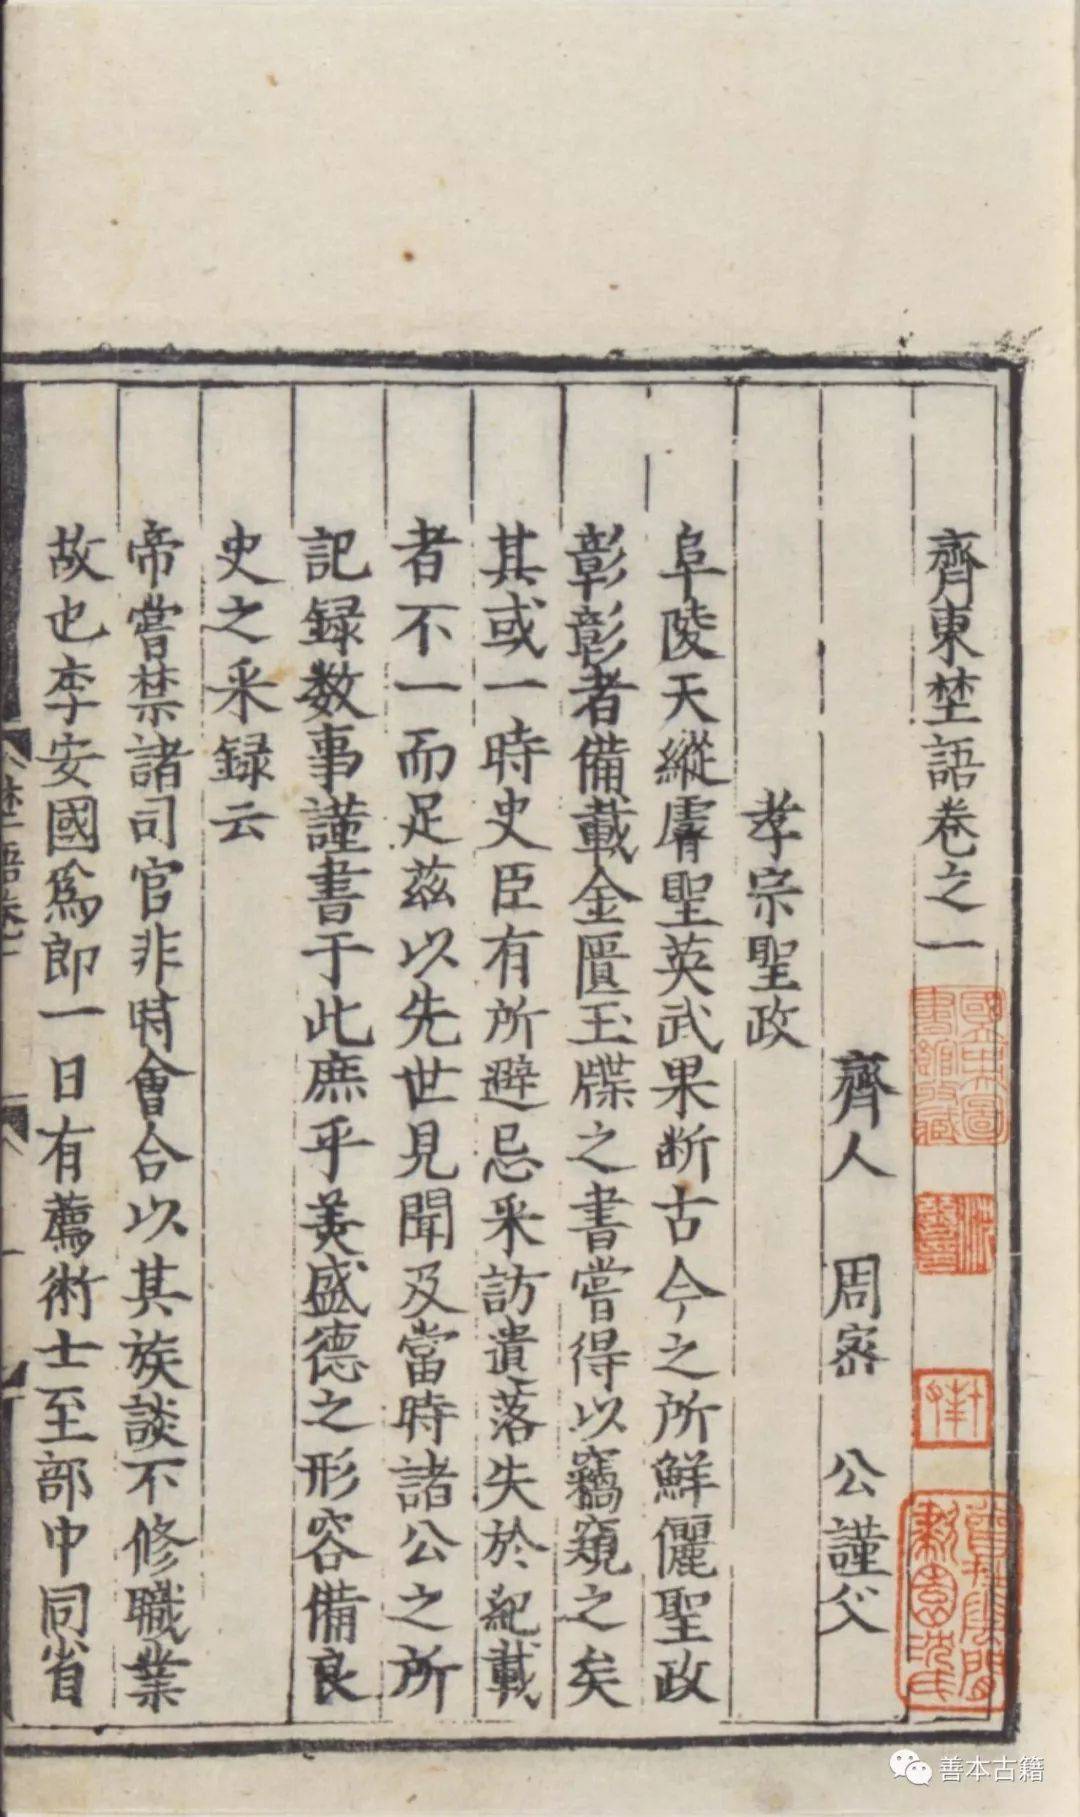 齊東埜語卷之一
齊人 周宻 公謹父
孝宗聖政
阜陵天縱膚聖英武果断古今之所鮮儷聖政
彰彰者備載金匱玉牒之書嘗得以竊窺之矣
其或一時史臣有所避忌采訪遺落失於紀載
者不一而足茲以先世見聞及當時諸公之所
記録数事謹書于此庶乎美盛德之形容備良
史之采録云
帝嘗禁諸司官非時會合以其族談不修職業
故也李安國爲郎一日有薦術士至部中同省
埜語卷一
國立中央圖書館收藏
善本古籍